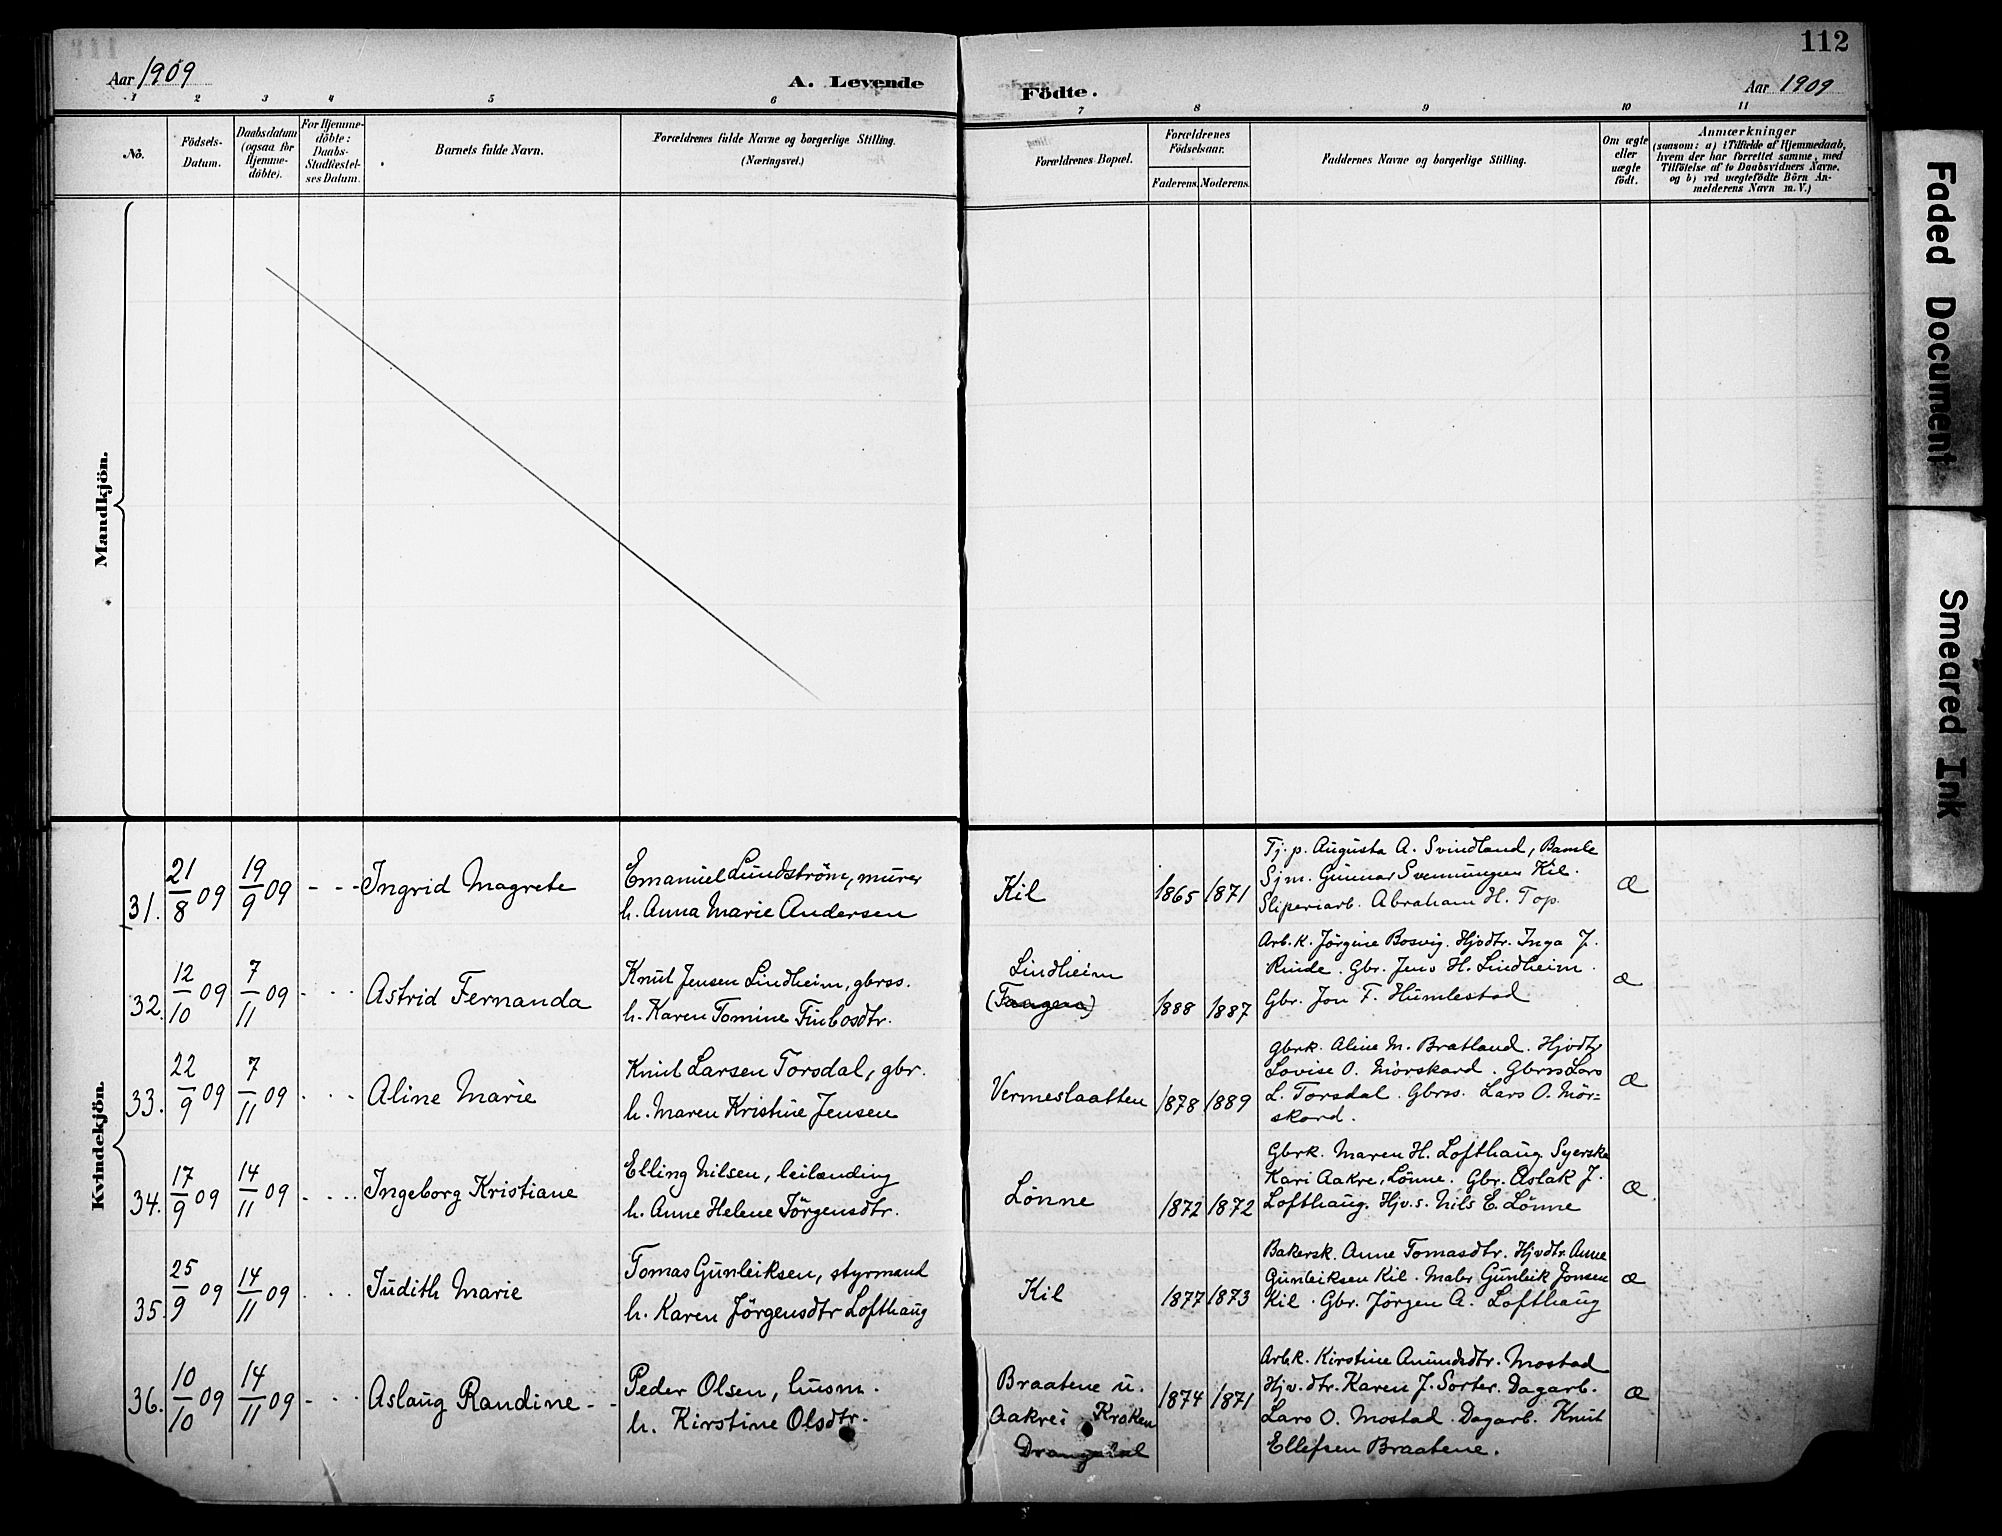 112
Aar 1909
A. Levende
Födte.
Aar 1909
1 2 3 4 5 6 7 8 9 10 11
No.
Födsels-
Datum.
Daabsdatum
(ogsaa for
Hjemme-
döbte).
For Hjemme-
döbte:
Daabs-
Stadfæstel-
ses Datum.
Barnets fulde Navn.
Forældrenes fulde Navne og borgerlige Stilling.
(Næringsvei.)
Forældrenes Bopæl.
Forældrenes
Födselsaar.
Faderens. Moderens.
Faddernes Navne og borgerlige Stilling.
Om ægte
eller
uægte
født.
Anmærkninger
(saasom: a) i Tilfælde af Hjemmedaab,
hvem der har forrettet samme, med
Tilföielse af to Daabsvidners Navne,
og b) ved uægtefödte Börn An-
melderens Navn m. V.)
Mandkjön.
Kvindekjön.
31.
21/8 09
19/9 09
- - -
Ingrid Magrete
Emanuel Lundström, murer
h. Anna Marie Andersen
Kil
1865
1871
Tj. p. Augusta A. Svindland, Bamle
Sjm. Gunnar Svenningsen Kil.
Sliperiarb. Abraham H. Top.
Æ
32.
12/10 09
7/11 09
- - -
Astrid Fernanda
Knut Jensen Lindheim, gbrss.
h. Karen Tomine Finbosdtr.
Lindheim
(Tangen)
1888
1887
Arb.k. Jörgine Bosvig. Hjvdtr. Inga J.
Rinde. Gbr. Jens H. Lindheim.
Gbr. Jon F. Humlestad
æ
33.
22/9 09
7/11 09
- - -
Aline Marie
Knut Larsen Torsdal, gbr.
h. Maren Kristine Jensen
Vermeslaatten
1878
1889
Gbrk. Aline M. Bratland. Hjvdtr
Lovise O. Mörskard. Gbrss Lars
L. Torsdal. Gbrss. Lars O. Mör=
skard.
Æ
34.
17/9 09
14/11 09
- - -
Ingeborg Kristiane
Elling Nilsen, leilænding
h. Anne Helene Jörgensdtr.
Lönne
1872
1872
Gbrk. Maren H. Lofthaug Syerske
Kari Aakre, Lönne. Gbr. Aslak J.
Lofthaug. Hjv.s. Nils E. Lönne
Æ.
35.
25/9 09
14/11 09
- - -
Judith Marie
Tomas Gunleiksen, styrmand
h. Karen Jörgensdtr Lofthaug
Kil
1877
1873
Bakersk. Anne Tomasdtr. Hjvdtr Anne
Gunleiksen Kil. Maler Gunleik Jonsen
Kil. Gbr. Jörgen A. Lofthaug
Æ
36.
10/10 09
14/11 09
- - -
Aslaug Randine - -
Peder Olsen, husm.
h. Kirstine Olsdtr.
Braatene u.
Aakre i Kroken
Drangedal
1874
1871
Arb.k. Kirstine Amundsdtr. Mostad
Hjv.dtr. Karen J. Sorter. Dagarb.
Lars O. Mostad. Dagarb. Knut
Ellefsen Braatene.
Æ
Faded Document
Smeared Ink